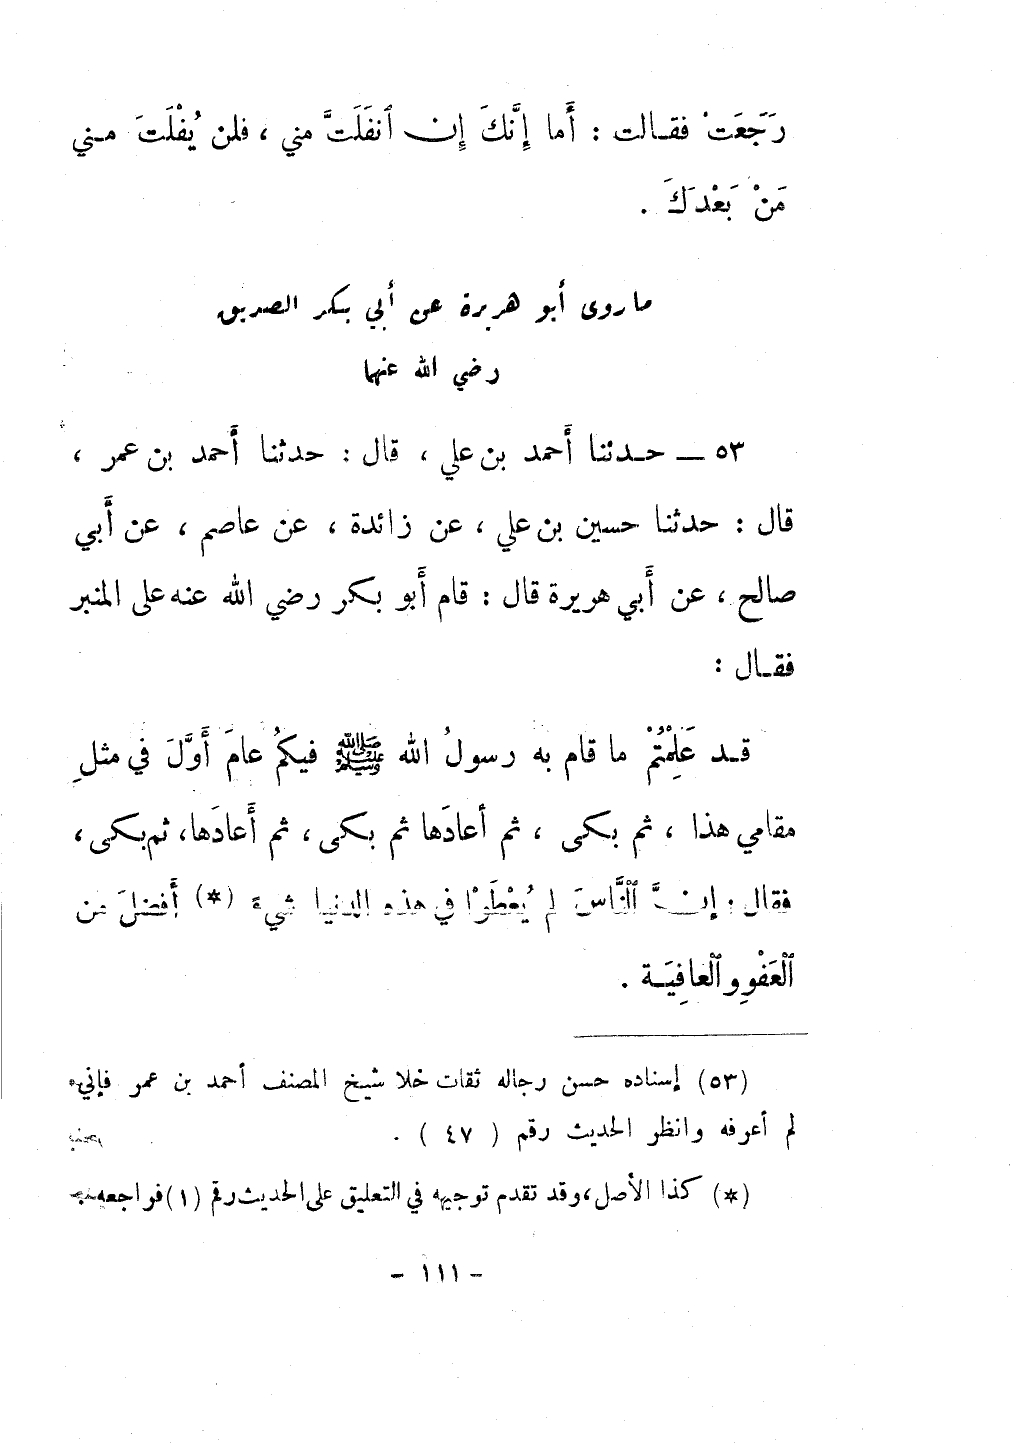 رَجَعَتْ فقـالت : أَما إِنَّكَ إِن ٱنفَلَتَّ مني ، فلن يُفْلَتَ مـني
مَنْ بَعْدَكَ .
ما روى أبو هريرة عن أبي بكر الصديق
رضي الله عنهما
٥٣ — حـدثنا أَحمد بن علي ، قال : حدثنا أَحمد بن عمر ،
قال : حدثنا حسين بن علي ، عن زائدة ، عن عاصم ، عن أَبي
صالح ، عن أَبي هريرة قال : قام أَبو بكر رضي الله عنه على المنبر
فقـال :
قـد عَلِمْتُمْ ما قام به رسولُ الله ﷺ فيكمُ عامَ أَوَّلَ في مثلِ
مقامي هذا ، ثم بكى ، ثم أعادَها ثم بكى ، ثم أَعادَها، ثم بكى ،
فقال : إِنَّ ٱلنَّاسَ لم يُعْطَوْا في هذه الدنيا شيء (*) أَفضلَ من
ٱلْعَفْوِ وٱلْعافِيَـة .
(٥٣) إسناده حسن رجاله ثقات خلا شيخ المصنف أحمد بن عمر فإني
لم أعرفه وانظر الحديث رقم ( ٤٧ ) .
(*) كذا الأصل ، وقد تقدم توجيهه في التعليق على الحديث رقم (١) فراجعه
- ١١١ -